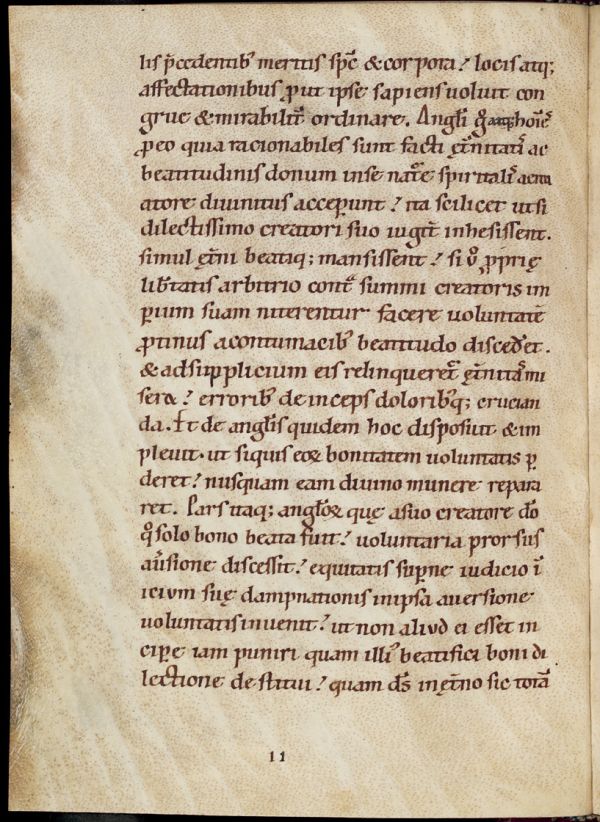 lis p̄cedentib; meritis sp̄c & corpora? locis atq;
affectationibus ꝓut ipse sapiens uoluit con
grue & mirabilit̄ ordinare. Angl̄i hoīe᷒
ꝓeo quia racionabiles sunt facti et̄nitati᷒ ac
beatitudinis donum inse nat̄e spiritali᷒
atore diuinitus acceperunt? ita scilicet utsi
dilectissimo creatori suo iugit̄ inhesissent.
simul et̄ni beatiq; mansissent? si ū ꝓprię
lib̄tatis arbitrio cont̄ summi creatoris im
ꝑium suam niterentur facere uoluntatē
ꝓtinus acontumacib; beatitudo disced̄et.
& adsupplicium eis relinqueret᷒ et̄nitas᷒ mi
sera? errorib; deinceps dolorib;q; crucian
da. Et de angl̄is quidem hoc disposuit & im
pleuit. ut siquis eoꝝ bonitatem uoluntatis ꝑ
deret? nusquam eam diuino munere repara
ret. Pars itaq; angl̄oꝝ quę asuo creatore dō
qͦ solo bono beata fuit? uoluntaria prorsus
au̅sione discessit? equitatis suꝑne iudicio ī
icium suę dampnationis inipsa auersione
uoluntatis inuenit? ut non aliud ei esset in
ciꝑe iam puniri quam illi᷒ beatifici boni di
lectione destitui? quam dꝭ inet̄no sic totā
11